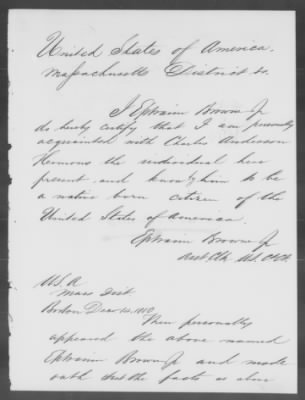 United States of America.
Massachusetts District ss.
I Ephraim Brown Jr
do hereby certify that I am personally
acquainted with Charles Anderson
Hermons the individual here
present and know him to be
a native born citizen of the
United States of America.
Ephraim Brown Jr
U.S.A
Mass Dist
Boston Dec 14, 1880.
Then personally
appeared the above named
Ephraim Brown Jr and made
oath that the facts as above